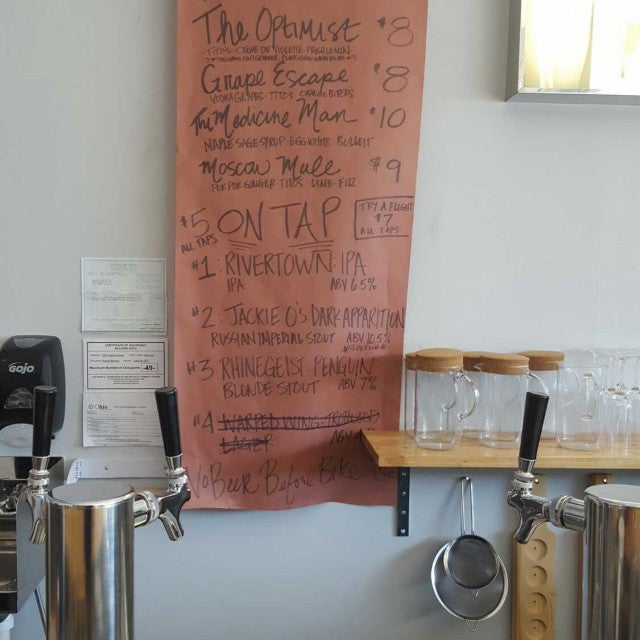 The Optimist $8
TITO'S · CRÈME DE VIOLETTE · FRESH LEMON
Grape Escape $8
VODKA GRAPES · TITO'S · BITTERS
The Medicine Man $10
MAPLE SAGE SYRUP · EGG WHITE · BULLEIT
Moscow Mule $9
POK POK GINGER · TITO'S · LIME · FIZZ
$5 ALL TAPS
ON TAP
TRY A FLIGHT
$7
ALL TAPS
#1: RIVERTOWN · IPA
IPA ABV 6.5%
#2: JACKIE O'S DARK APPARITION
RUSSIAN IMPERIAL STOUT ABV 10.5%
#3: RHINEGEIST · PENGUIN
BLONDE STOUT ABV 7%
#4 WARPED WING
LAGER ABV
No Beer Before Bike
GOJO
CERTIFICATE OF OCCUPANCY
-49-
Ohio